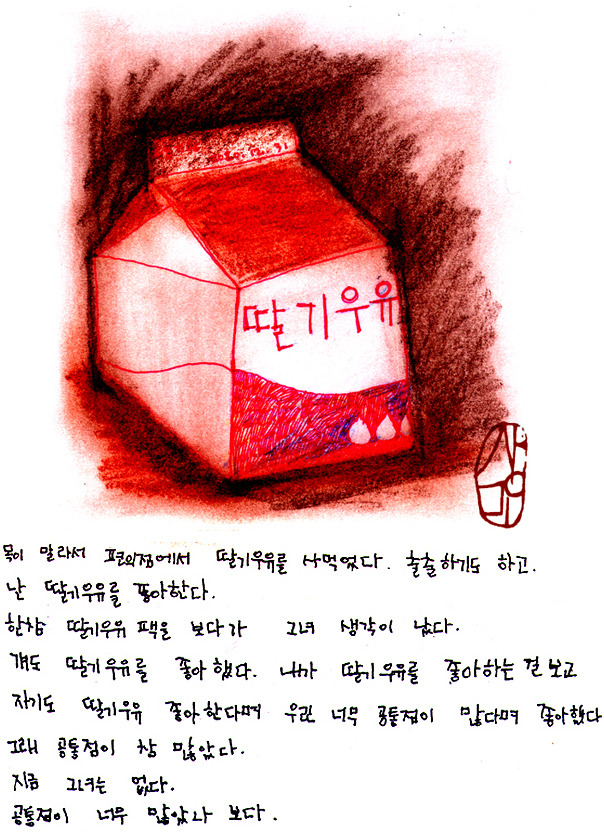 딸기우유
목이 말라서 편의점에서 딸기우유를 사먹었다. 출출하기도 하고.
난 딸기우유를 좋아한다.
한참 딸기우유 팩을 보다가 그녀 생각이 났다.
걔도 딸기우유를 좋아했다. 내가 딸기우유를 좋아하는 걸 보고
자기도 딸기우유 좋아한다며 우린 너무 공통점이 많다며 좋아했다
그래 공통점이 참 많았다.
지금 그녀는 없다.
공통점이 너무 많았나 보다.